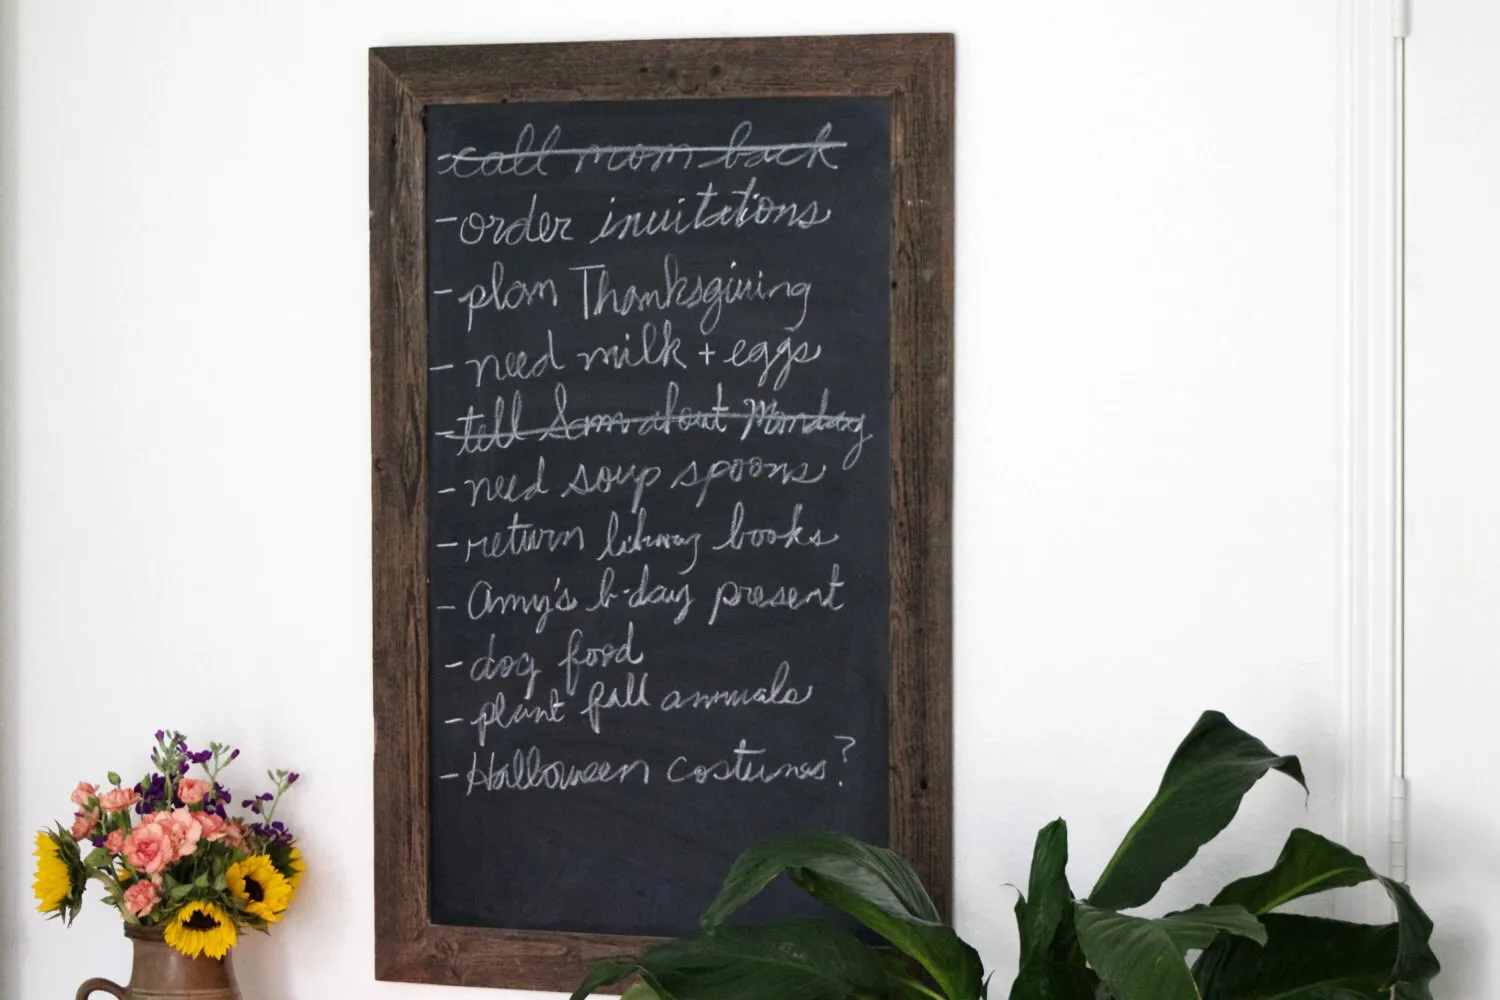 - call mom back
- order invitations
- plan Thanksgiving
- need milk + eggs
- tell Sam about Monday
- need soup spoons
- return library books
- Amy's b-day present
- dog food
- plant fall annuals
- Halloween costumes?